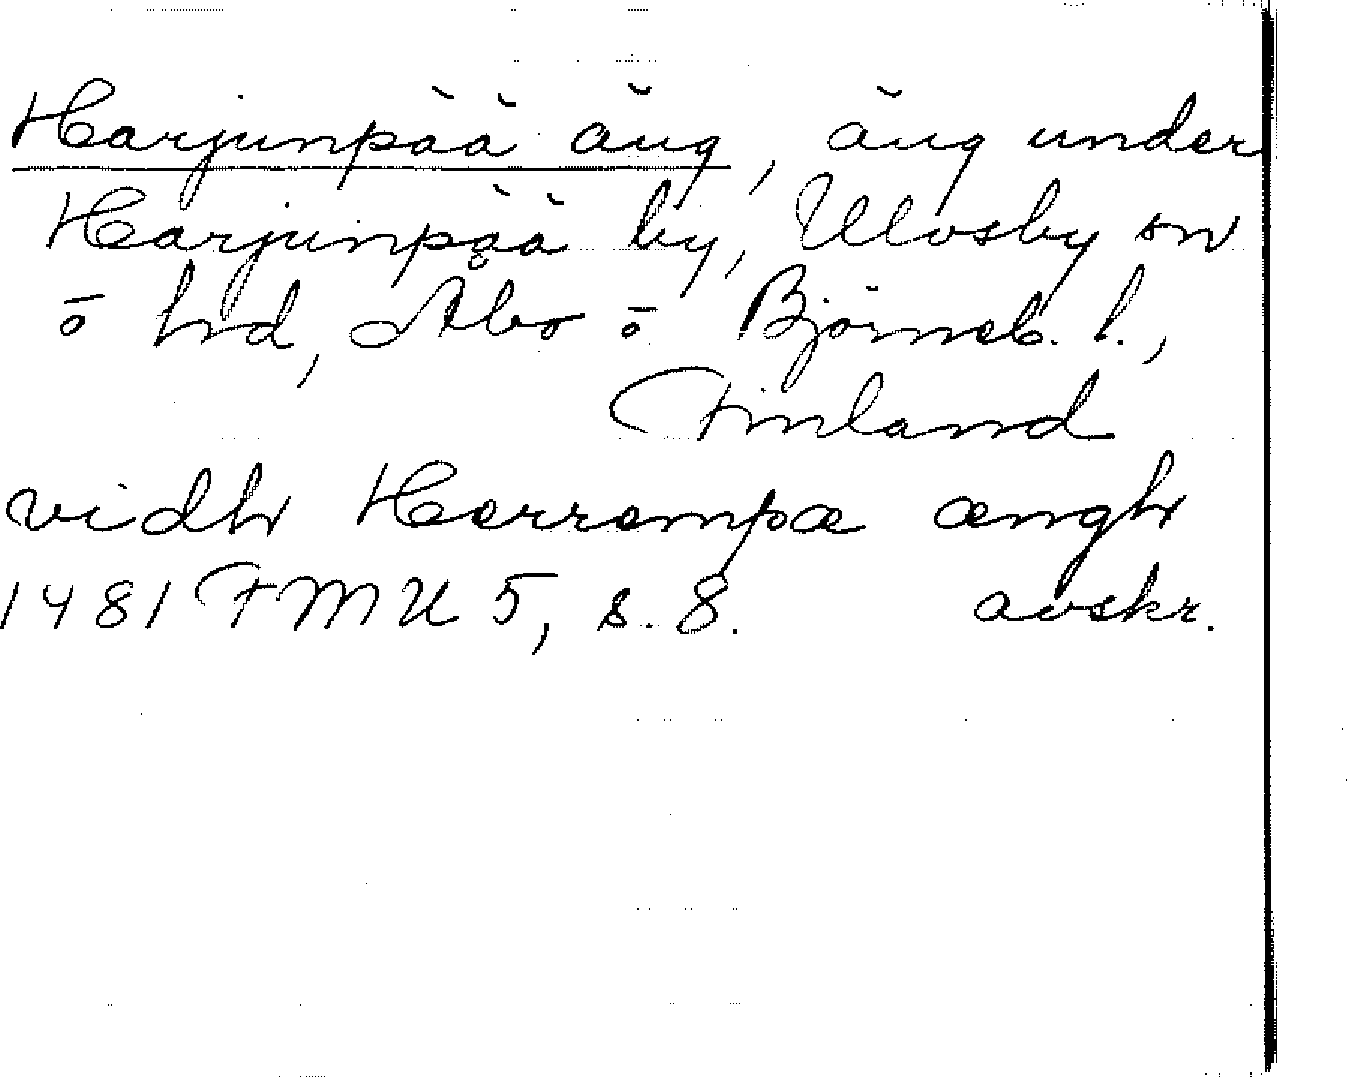 Harjunpää äng, äng under
Harjunpää by, Ulvsby sn
o hrd, Åbo o Björneb. l.,
Finland
vidh Herrempæ ængh
1481 FMU 5, s. 8. avskr.